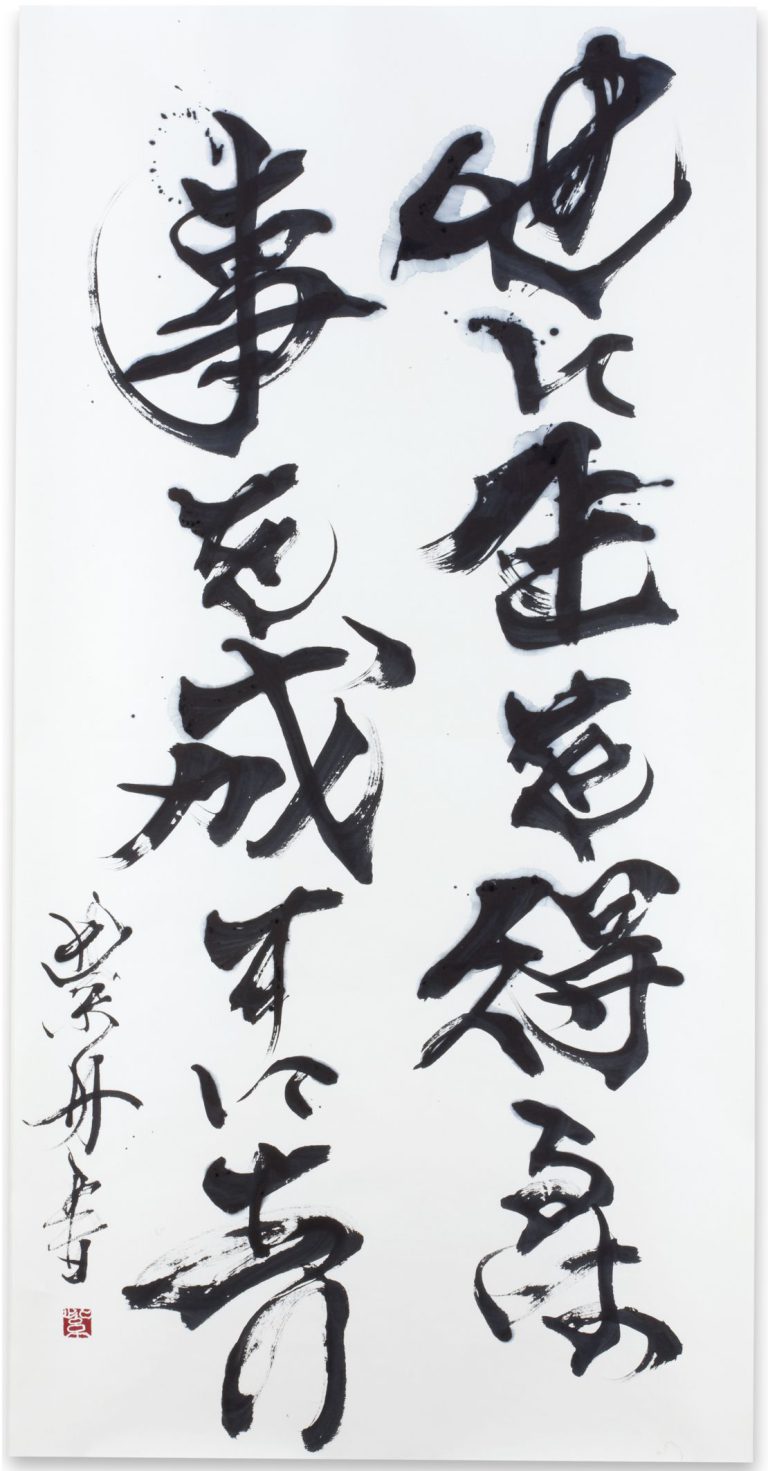 世に生を得るは
事を成すにあり
紫舟書
紫